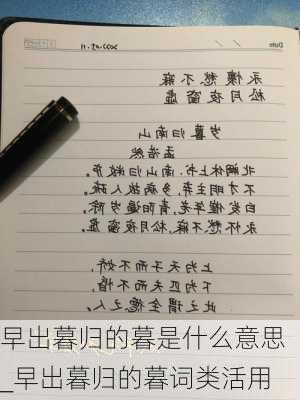 Date
永懷愁不寐
松月夜窗虚
岁暮归南山
孟浩然
北阙休上书，南山归敝庐。
不才明主弃，多病故人疏。
白发催年老，青阳逼岁除。
永怀愁不寐，松月夜窗虚。
上为天子而不骄，
下为匹夫而不惛
此之谓全德之人。
早出暮归的暮是什么意思
_早出暮归的暮词类活用